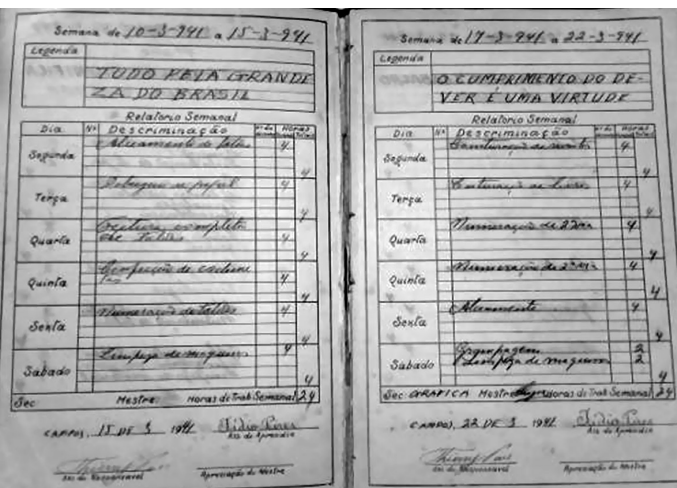 Semana de 10-3-941 a 15-3-941
Legenda
TUDO PELA GRANDE
ZA DO BRASIL
Relatorio Semanal
Dia Nº Descriminação Horas
Segunda Alceamento de talões 4
4
Terça e papel 4
4
Quarta completa
de talões 4
4
Quinta Confecção de 4
4
Sexta Numeração de talões 4
4
Sabado Limpeza de maquinas 4
4
Sec. Mestre: Horas di Trab. Semanal 24
CAMPOS, 15 DE 3 1941
Ass. do Aprendiz
Ass. do Responsavel Apreciação do Mestre
Semana de 17-3-941 a 22-3-941
Legenda
O CUMPRIMENTO DO DE-
VER É UMA VIRTUDE
Relatorio Semanal
Dia Nº Descriminação Horas
Segunda 4
4
Terça Costuração de livros 4
4
Quarta Numeração de 2ª via 4
4
Quinta Numeração de 2ª via 4
4
Sexta Alceamento 4
4
Sabado Grampagem 2
Limpeza de maquinas 2
4
Sec. GRAFICA Mestre Horas di Trab. Semanal 24
CAMPOS, 22 DE 3 1941
Ass. do Aprendiz
Ass. do Responsavel Apreciação do Mestre